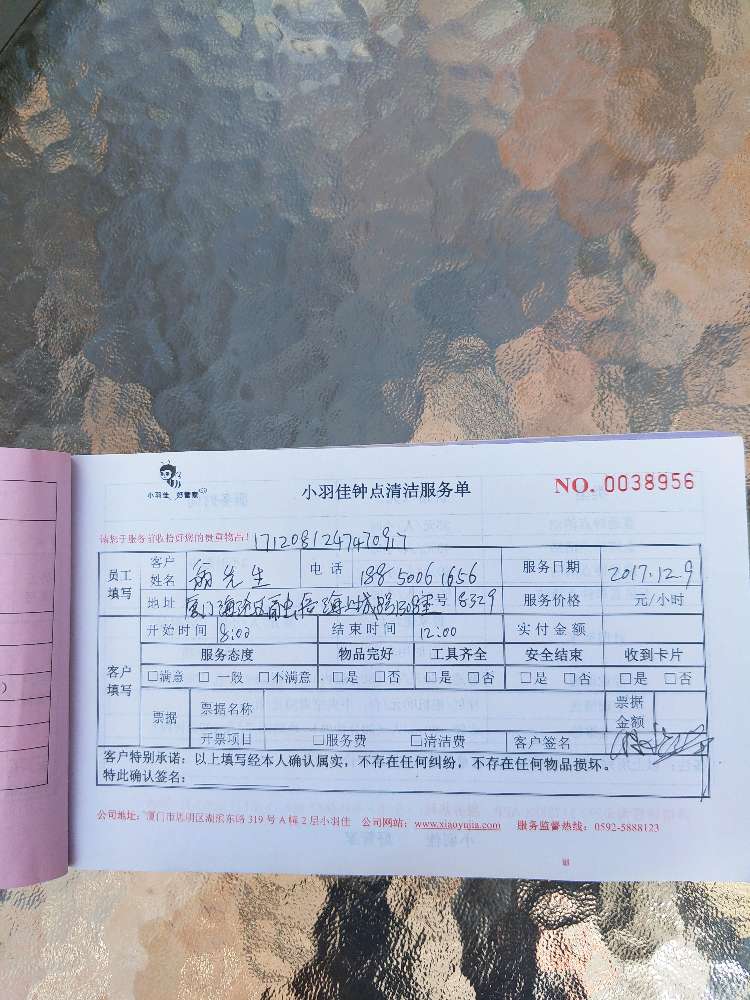 小羽佳 好管家
小羽佳钟点清洁服务单
NO. 0038956
请您于服务前收拾好您的贵重物品！ 1712081247470917
员工填写 客户姓名 翁先生 电话 188 5006 1656 服务日期 2017.12.9
地址 厦门海沧区融 海上城 号 8329 服务价格 元/小时
客户填写 开始时间 8:00 结束时间 12:00 实付金额
服务态度 物品完好 工具齐全 安全结束 收到卡片
□满意 □一般 □不满意 □是 □否 □是 □否 □是 □否 □是 □否
票据 票据名称 票据金额
开票项目 □服务费 □清洁费 客户签名
客户特别承诺：以上填写经本人确认属实，不存在任何纠纷，不存在任何物品损坏。
特此确认签名：
公司地址：厦门市思明区湖滨东路 319 号 A 幢 2 层小羽佳 公司网站：www.xiaoyujia.com 服务监督热线：0592-5888123